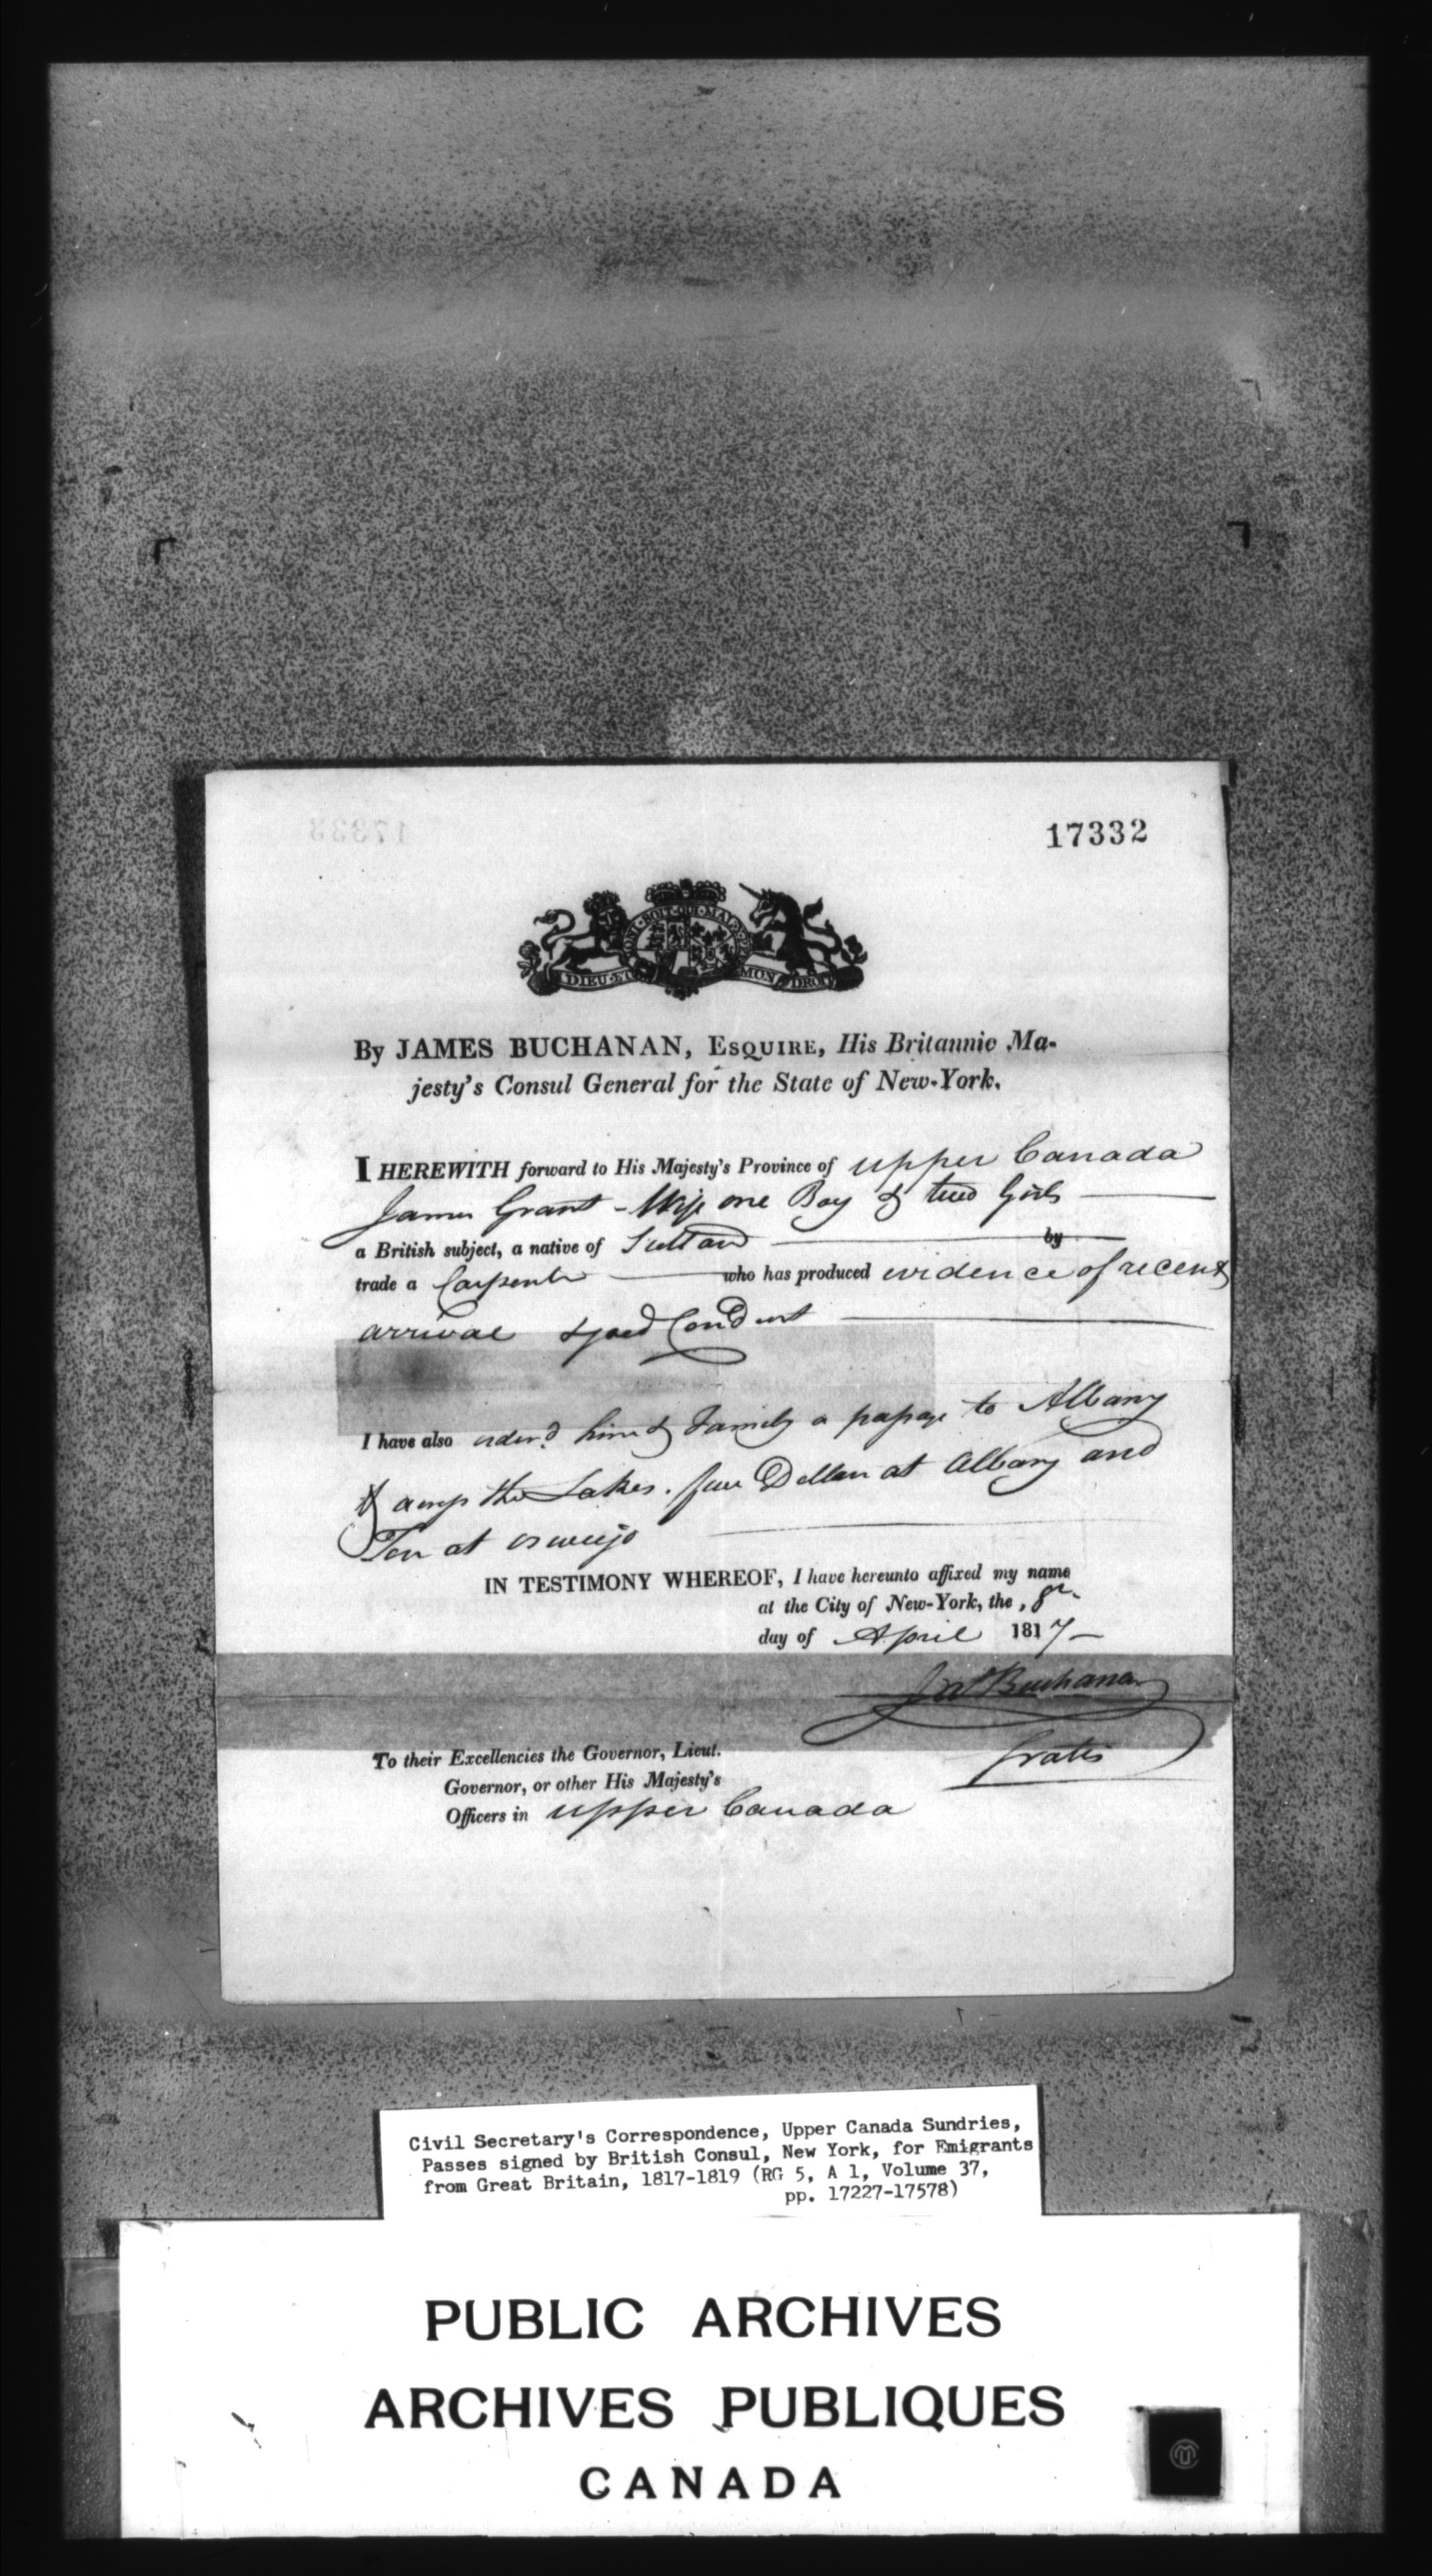 17332
HONI·SOIT·QUI·MAL·Y·PE
DIEU·ET MON DROIT
By JAMES BUCHANAN, ESQUIRE, His Britannic Ma-
jesty's Consul General for the State of New-York.
I HEREWITH forward to His Majesty's Province of upper Canada
James Grant - Wife one Boy & two Girls
a British subject, a native of by
trade a Carpenter who has produced evidence of recent
arrival & good Conduct
I have also order'd him & Family a passage to Albany
& the Lakes. Dollars at Albany and
Ten at oswego
IN TESTIMONY WHEREOF, I have hereunto affixed my name
at the City of New-York, the, 8th
day of April 1817
Jas Buchanan
Gratis
To their Excellencies the Governor, Lieut.
Governor, or other His Majesty's
Officers in upper Canada
Civil Secretary's Correspondence, Upper Canada Sundries,
Passes signed by British Consul, New York, for Emigrants
from Great Britain, 1817-1819 (RG 5, A 1, Volume 37,
pp. 17227-17578)
PUBLIC ARCHIVES
ARCHIVES PUBLIQUES
CANADA